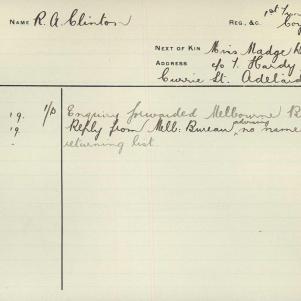 NAME R. A. Clinton
REG., &C. 1st
NEXT OF KIN Miss Madge
ADDRESS c/o T. Hardy
Currie St. Adelaid
19. 1/D Enquiry forwarded Melbourne B
19 Reply from Melb: Bureau advising no name
returning list.